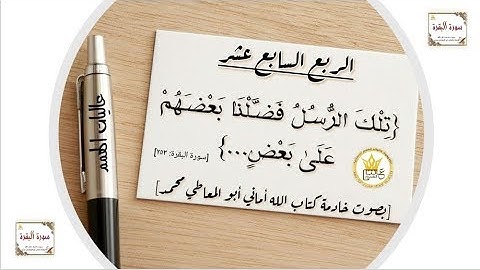 سورة البقرة
سورة البقرة
الربع السابع عشر
{تِلْكَ الرُّسُلُ فَضَّلْنَا بَعْضَهُمْ
عَلَىٰ بَعْضٍ...}
[سورة البقرة: ٢٥٣]
[بصوت خادمة كتاب الله أماني أبو المعاطي محمد]
عاليات الهمم
سورة البقرة